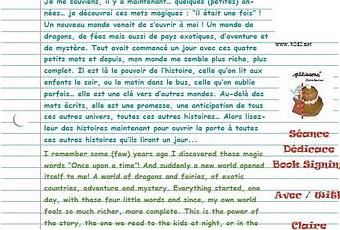 Je me souviens, il y a maintenant... quelques (petites) an-
nées... je découvrai ces mots magiques : "il était une fois" !
Un nouveau monde venait de s'ouvrir à moi ! Un monde de
dragons, de fées mais aussi de pays exotiques, d'aventure et
de mystère. Tout avait commencé un jour avec ces quatre
petits mots et depuis, mon monde me semble plus riche, plus
complet. Il est là le pouvoir de l'histoire, celle qu'on lit aux
enfants le soir, ou le matin dans le bus, celle qu'on oublie
parfois... elle est une clé vers d'autres mondes. Au-delà des
mots écrits, elle est une promesse, une anticipation de tous
ces autres univers, toutes ces autres histoires... Alors lisez-
leur des histoires maintenant pour ouvrir la porte à toutes
ces autres histoires qu'ils liront un jour...
I remember some (few) years ago I discovered these magic
words "Once upon a time"! And suddenly a new world opened
itself to me! A world of dragons and fairies, of exotic
countries, adventure and mystery. Everything started, one
day, with these four little words and since, my own world
feels so much richer, more complete. This is the power of
the story, the one we read to the kids at night, or in the
Séance
Dédicace
Book Signin
Avec / With
Claire